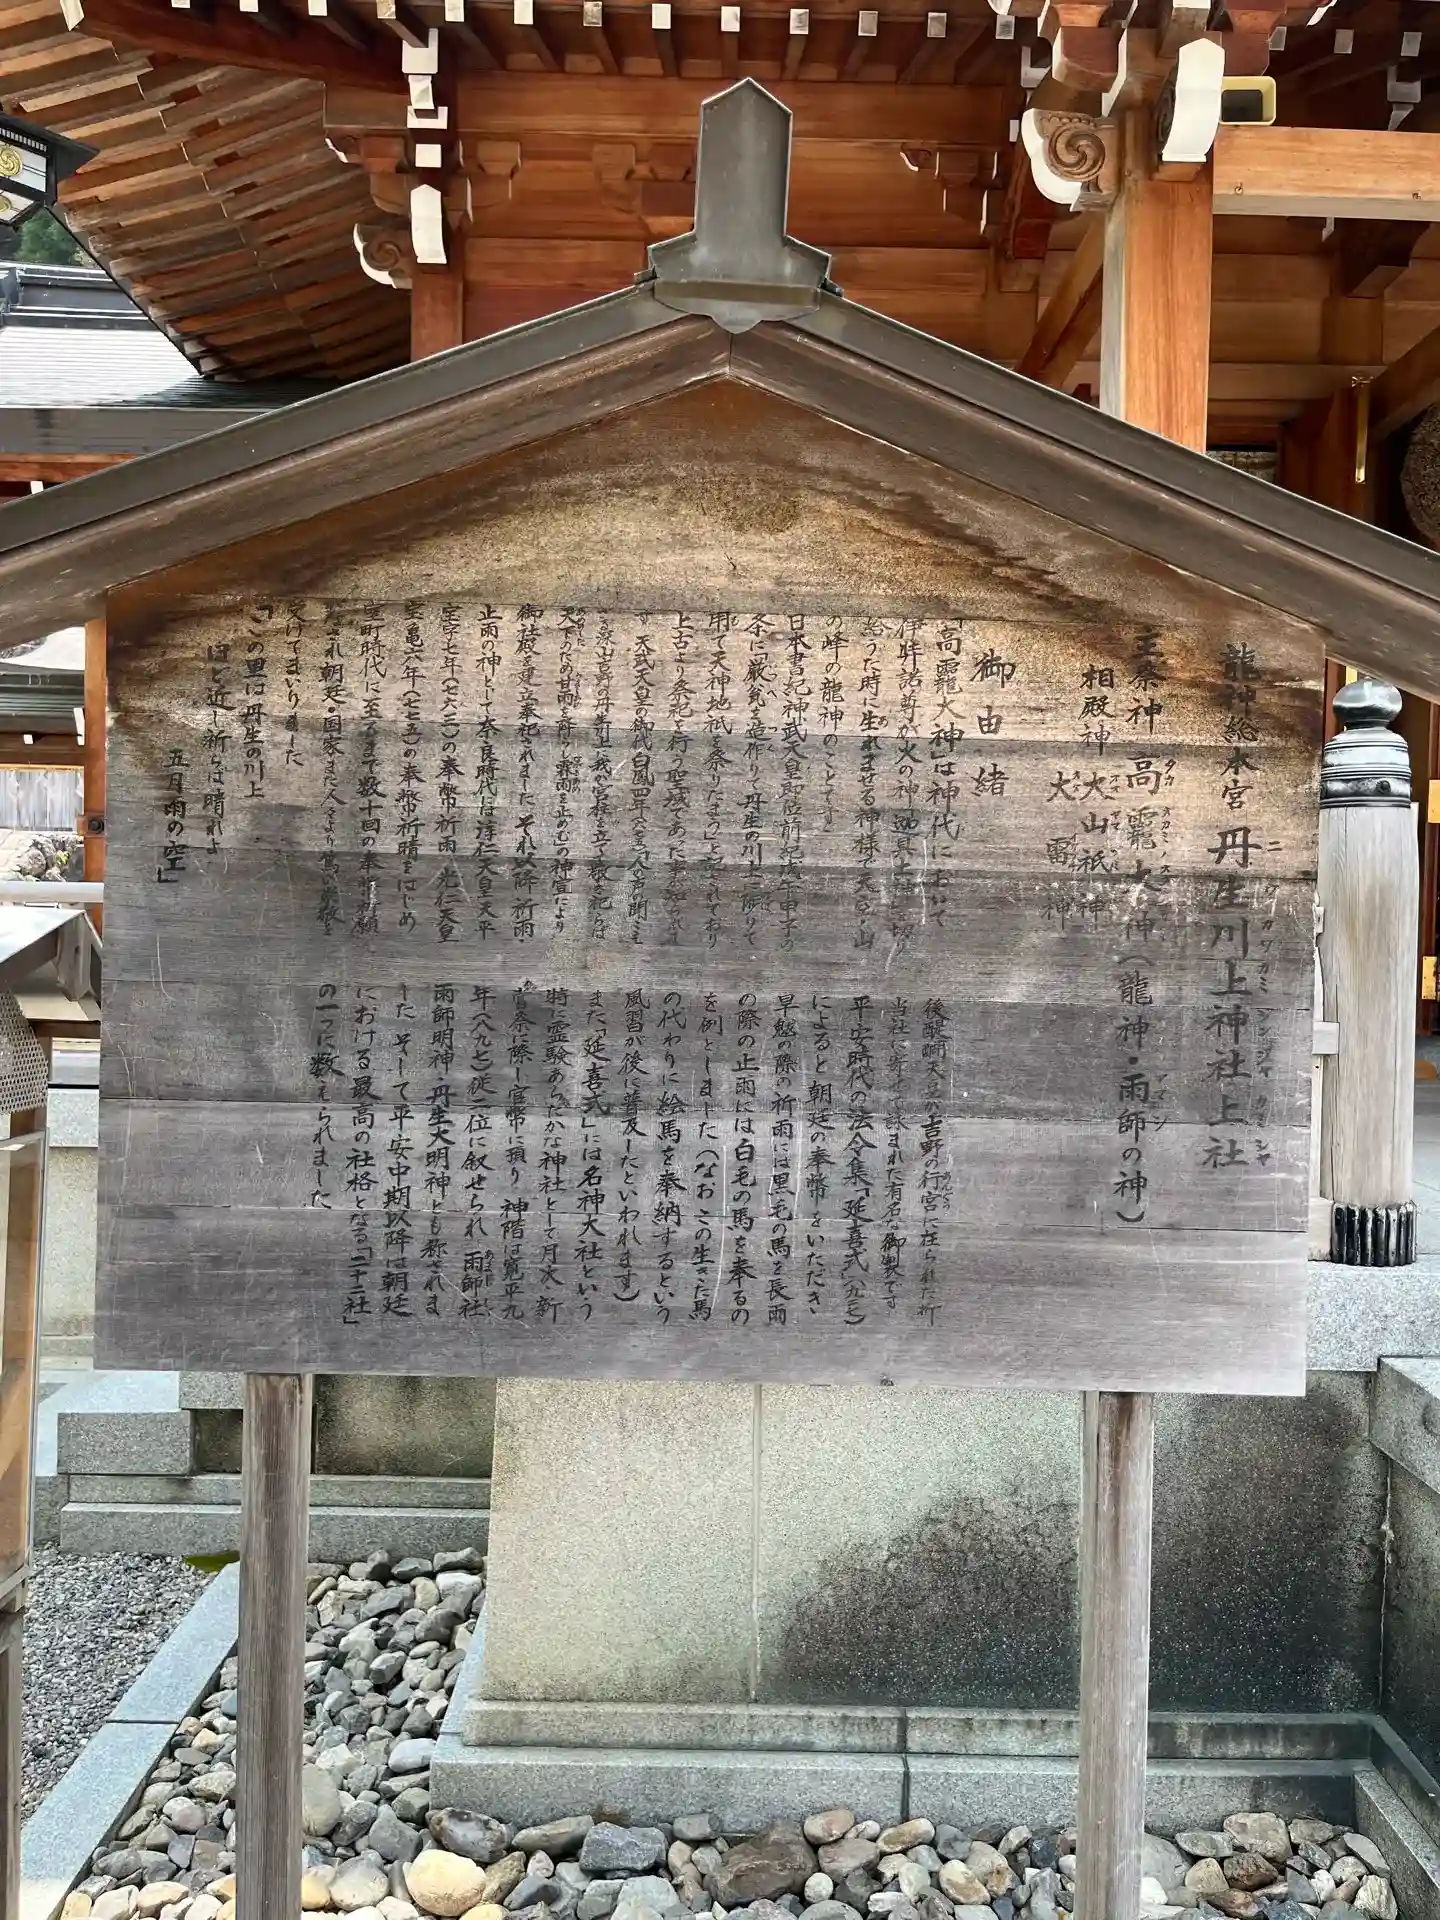 龍神総本宮 丹生川上神社上社
ニウカワカミジンジャカミシャ
主祭神 高龗大神(龍神・雨師の神)
相殿神 大山祇神
大雷神
御由緒
「高龗大神」は神代において
伊弉諾尊が火の神迦具土神を切り
給うた時に生れませる神様で天 の山
の峰の龍神のことです
日本書紀神武天皇即位前紀戊午甲子の
条に「厳瓮を造作りて丹生の川上に陟りて
用て天神地祇を祭りたまう」と記されており
上古より祭祀を行う聖域であった事が知られま
す 天武天皇の御代白鳳四年 「人の声の聞こえ
ざる深山吉野の丹生川上に我が宮柱を立てて敬き祀らば
天下のために甘雨を降らし霖雨を止めむ」の神宣により
御社殿を建立奉祀されました それ以降祈雨・
止雨の神として奈良時代には淳仁天皇天平
宝字七年(七六三)の奉幣祈雨 光仁天皇
宝亀六年(七七五)の奉幣祈晴をはじめ
室町時代に至るまで数十回の奉幣祈願
がされ朝廷・国家また人々より篤い崇敬を
受けてまいりました
「この里は丹生の川上
ほど近し祈らば晴れよ
五月雨の空」
後醍醐天皇が吉野の行宮に在られた折
当社に寄せて詠まれた有名な御製です
平安時代の法令集「延喜式」(九二七)
によると朝廷の奉幣をいただき
旱魃の際の祈雨には黒毛の馬を長雨
の際の止雨には白毛の馬を奉るの
を例としました(なおこの生きた馬
の代わりに絵馬を奉納するという
風習が後に普及したといわれます)
また「延喜式」には名神大社という
特に霊験あらたかな神社として月次・新
嘗祭に際し官幣に預り 神階は寛平九
年(八九七)従二位に叙せられ 雨師社
雨師明神・丹生大明神とも称されま
した そして平安中期以降は朝廷
における最高の社格となる「二十二社」
の一つに数えられました